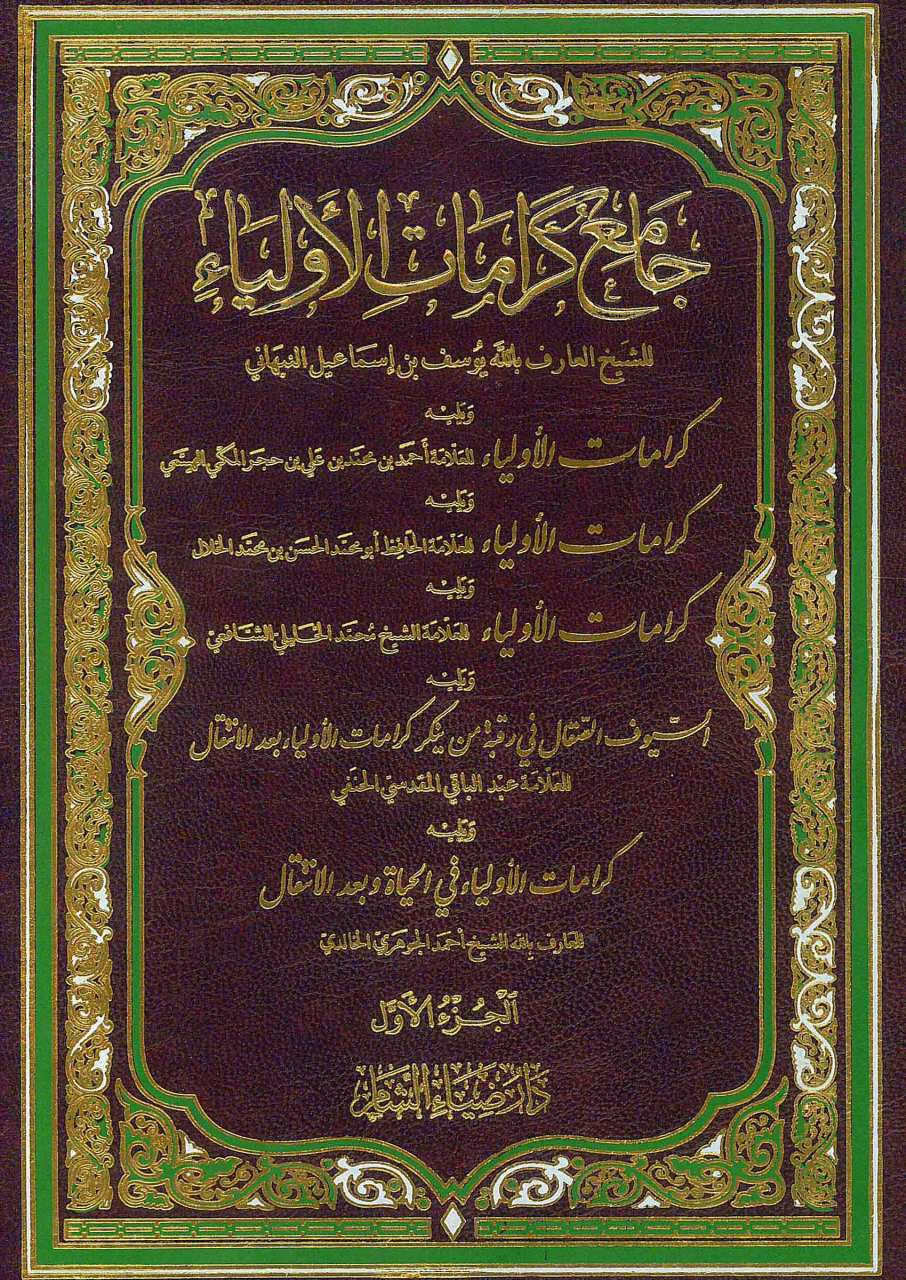 جامع كرامات الأولياء
للشيخ العارف بالله يوسف بن إسماعيل النبهاني
ويليه
كرامات الأولياء للعلامة أحمد بن محمد بن علي بن حجر المكي الهيتمي
ويليه
كرامات الأولياء للعلامة الحافظ أبو محمد الحسن بن محمد الخلال
ويليه
كرامات الأولياء للعلامة الشيخ محمد الخليلي الشافعي
ويليه
السيوف الصقال في رقبة من ينكر كرامات الأولياء بعد الانتقال
للعلامة عبد الباقي المقدسي الحنفي
ويليه
كرامات الأولياء في الحياة وبعد الانتقال
للعارف بالله الشيخ أحمد الجوهري الخالدي
الجزء الأول
دار ضياء الشام